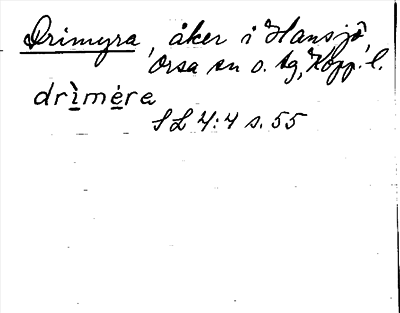 Drimyra, åker i Hansjö,
Orsa sn o. tg, Kopp. l.
drìmėra
SL 4:4 s. 55